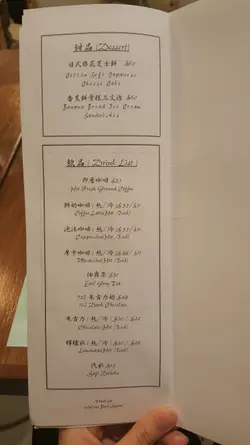 甜品 (Dessert)
日式棉花芝士餅 $60
Cotton Soft Japanese
Cheese Cake
香蕉餅雪糕三文治 $60
Banana Bread Ice Cream
Sandwiches
飲品 (Drink List)
即磨咖啡
Hot Fresh Ground Coffee
鮮奶咖啡(熱/冷)
Coffee Latte(Hot/Iced)
泡沫咖啡(熱/冷)
Cappuccino(Hot/Iced)
摩卡咖啡(熱/冷)
Mochaccino(Hot/Iced)
伯爵茶 $30
Earl Grey Tea
70% 朱古力奶
70% Dark Chocolate
朱古力(熱/冷)
Chocolate(Hot/Iced)
檸檬水(熱/冷)
Lemonade(Hot/Iced)
汽水
Soft Drinks